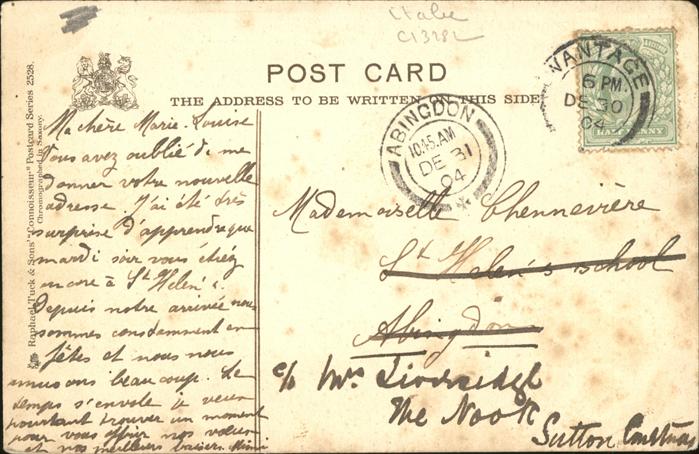 Italie
C13282
POST CARD
THE ADDRESS TO BE WRITTEN ON THIS SIDE
Raphael Tuck & Sons' "Connoisseur" Postcard Series 2528.
Chromographed in Saxony.
WANTAGE
6 PM.
DE 30
04
HALFPENNY
ABINGDON
10.45.AM
DE 31
04
Ma chère Marie-Louise
Vous avez oublié de me
donner votre nouvelle
adresse. J'ai été très
surprise d'apprendre que
mardi soir vous étiez
encore à St Helen's.
Depuis notre arrivée nous
sommes constamment en
fêtes et nous nous
amusons beaucoup. Le
temps s'envole je veux
pourtant trouver un moment
pour vous offrir nos vœux
et nos meilleurs baisers. Mimi
Mademoiselle Chennevière
St Helen's school
Abingdon
c/o Mrs
The Nook
Sutton Courtenay